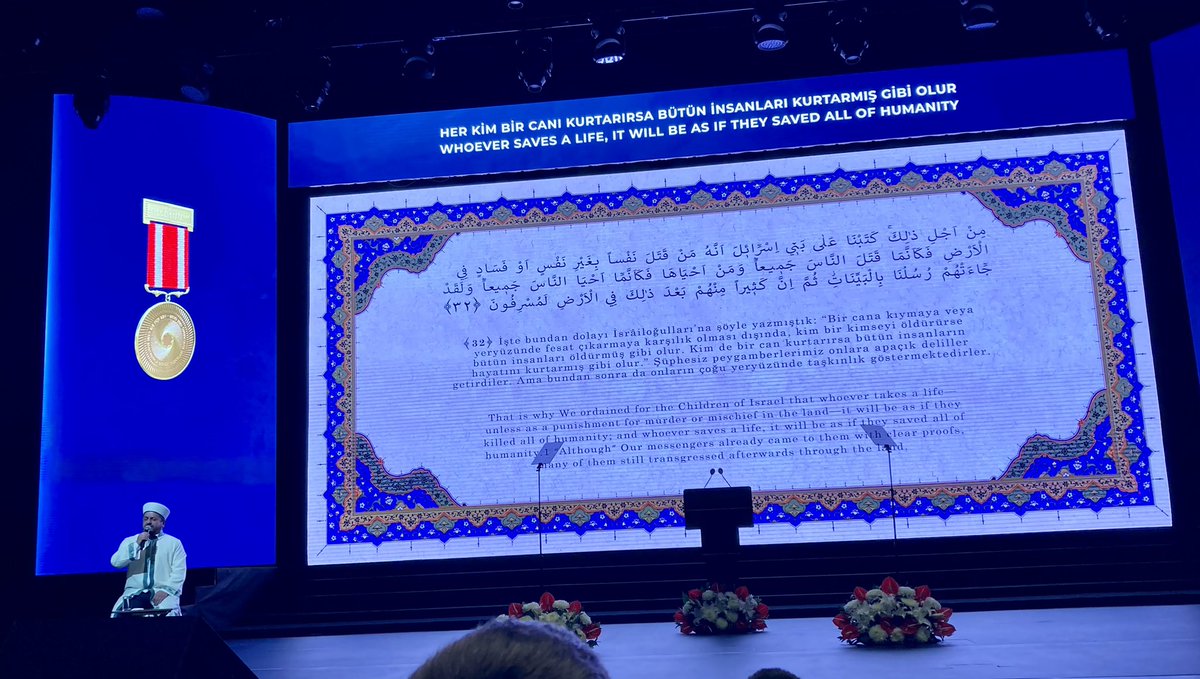 HER KİM BİR CANI KURTARIRSA BÜTÜN İNSANLARI KURTARMIŞ GİBİ OLUR
WHOEVER SAVES A LIFE, IT WILL BE AS IF THEY SAVED ALL OF HUMANITY
مِنْ اَجْلِ ذٰلِكَۚ كَتَبْنَا عَلٰى بَن۪ٓي اِسْرَٓائ۪لَ اَنَّهُ مَنْ قَتَلَ نَفْساً بِغَيْرِ نَفْسٍ اَوْ فَسَادٍ فِي
الْاَرْضِ فَكَاَنَّمَا قَتَلَ النَّاسَ جَم۪يعاًۜ وَمَنْ اَحْيَاهَا فَكَاَنَّمَٓا اَحْيَا النَّاسَ جَم۪يعاًۜ وَلَقَدْ
جَٓاءَتْهُمْ رُسُلُنَا بِالْبَيِّنَاتِۘ ثُمَّ اِنَّ كَث۪يراً مِنْهُمْ بَعْدَ ذٰلِكَ فِي الْاَرْضِ لَمُسْرِفُونَ ﴿٣٢﴾
﴾32﴿ İşte bundan dolayı İsrâiloğulları’na şöyle yazmıştık: “Bir cana kıymaya veya
yeryüzünde fesat çıkarmaya karşılık olması dışında, kim bir kimseyi öldürürse
bütün insanları öldürmüş gibi olur. Kim de bir can kurtarırsa bütün insanların
hayatını kurtarmış gibi olur.” Şüphesiz peygamberlerimiz onlara apaçık deliller
getirdiler. Ama bundan sonra da onların çoğu yeryüzünde taşkınlık göstermektedirler.
That is why We ordained for the Children of Israel that whoever takes a life—
unless as a punishment for murder or mischief in the land—it will be as if they
killed all of humanity; and whoever saves a life, it will be as if they saved all of
humanity. "Although" Our messengers already came to them with clear proofs,
many of them still transgressed afterwards through the land.